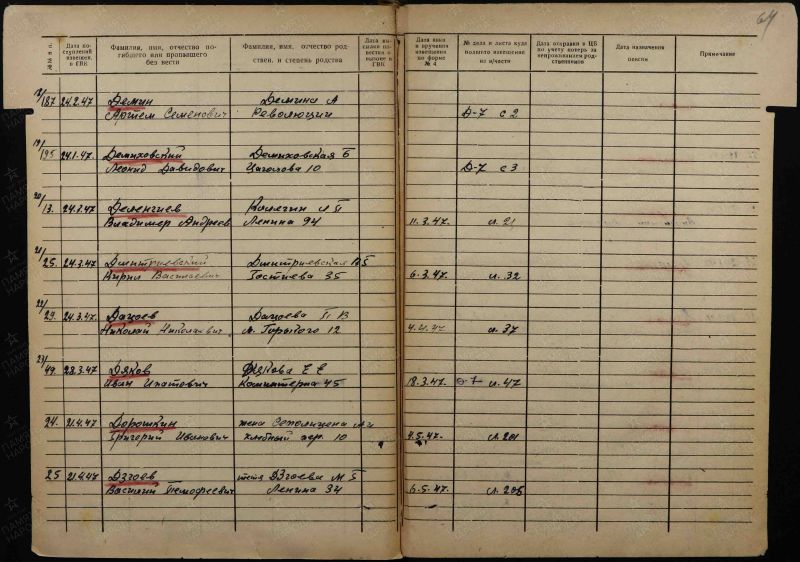 64
№№ п п.
Дата поступлений извещен. в ГВК
Фамилия, имя, отчество погибшего или пропавшего без вести
Фамилия, имя, отчество родствен. и степень родства
Дата вы повестки о вызове в ГВК
Дата явки и вручения извещения по форме № 4
№ дела и листа куда подшито извещение из в/части
Дата отправки в ЦБ по учету потерь за непроживанием родственников
Дата назначения пенсии
Примечание
18/187 24.2.47 Демин Демина А
Артем Семенович Революции Д-7 с 2
19/195 24.1.47. Демиховский Демиховская Б
Леонид Давидович Цаголова 10 Д-7 с 3
20/13. 24.3.47 Деленгиев
Владимер Андреев Ленина 94 11.3.47. л. 21
21/25. 24.3.47 Дмитриевский Дмитриевская
Кирил Васильевич 35 6.3.47. л. 32
22/29. 24.3.47 Дацоев Дацоева
Николай Николаевич м. Горького 12 л. 37
23/49. 28.3.47 Дяков Дякова Е Е
Иван Ипатович Коминтерна 45 18.3.47. л. 47
24. 21.4.47 Дорошкин жена
Григорий Иванович Хлебный пер. 10 4.5.47. л. 201
25 21.4.47 Дзгоев тетя Дзгоева М Б
Василий Тимофеевич Ленина 34 6.5.47. л. 205